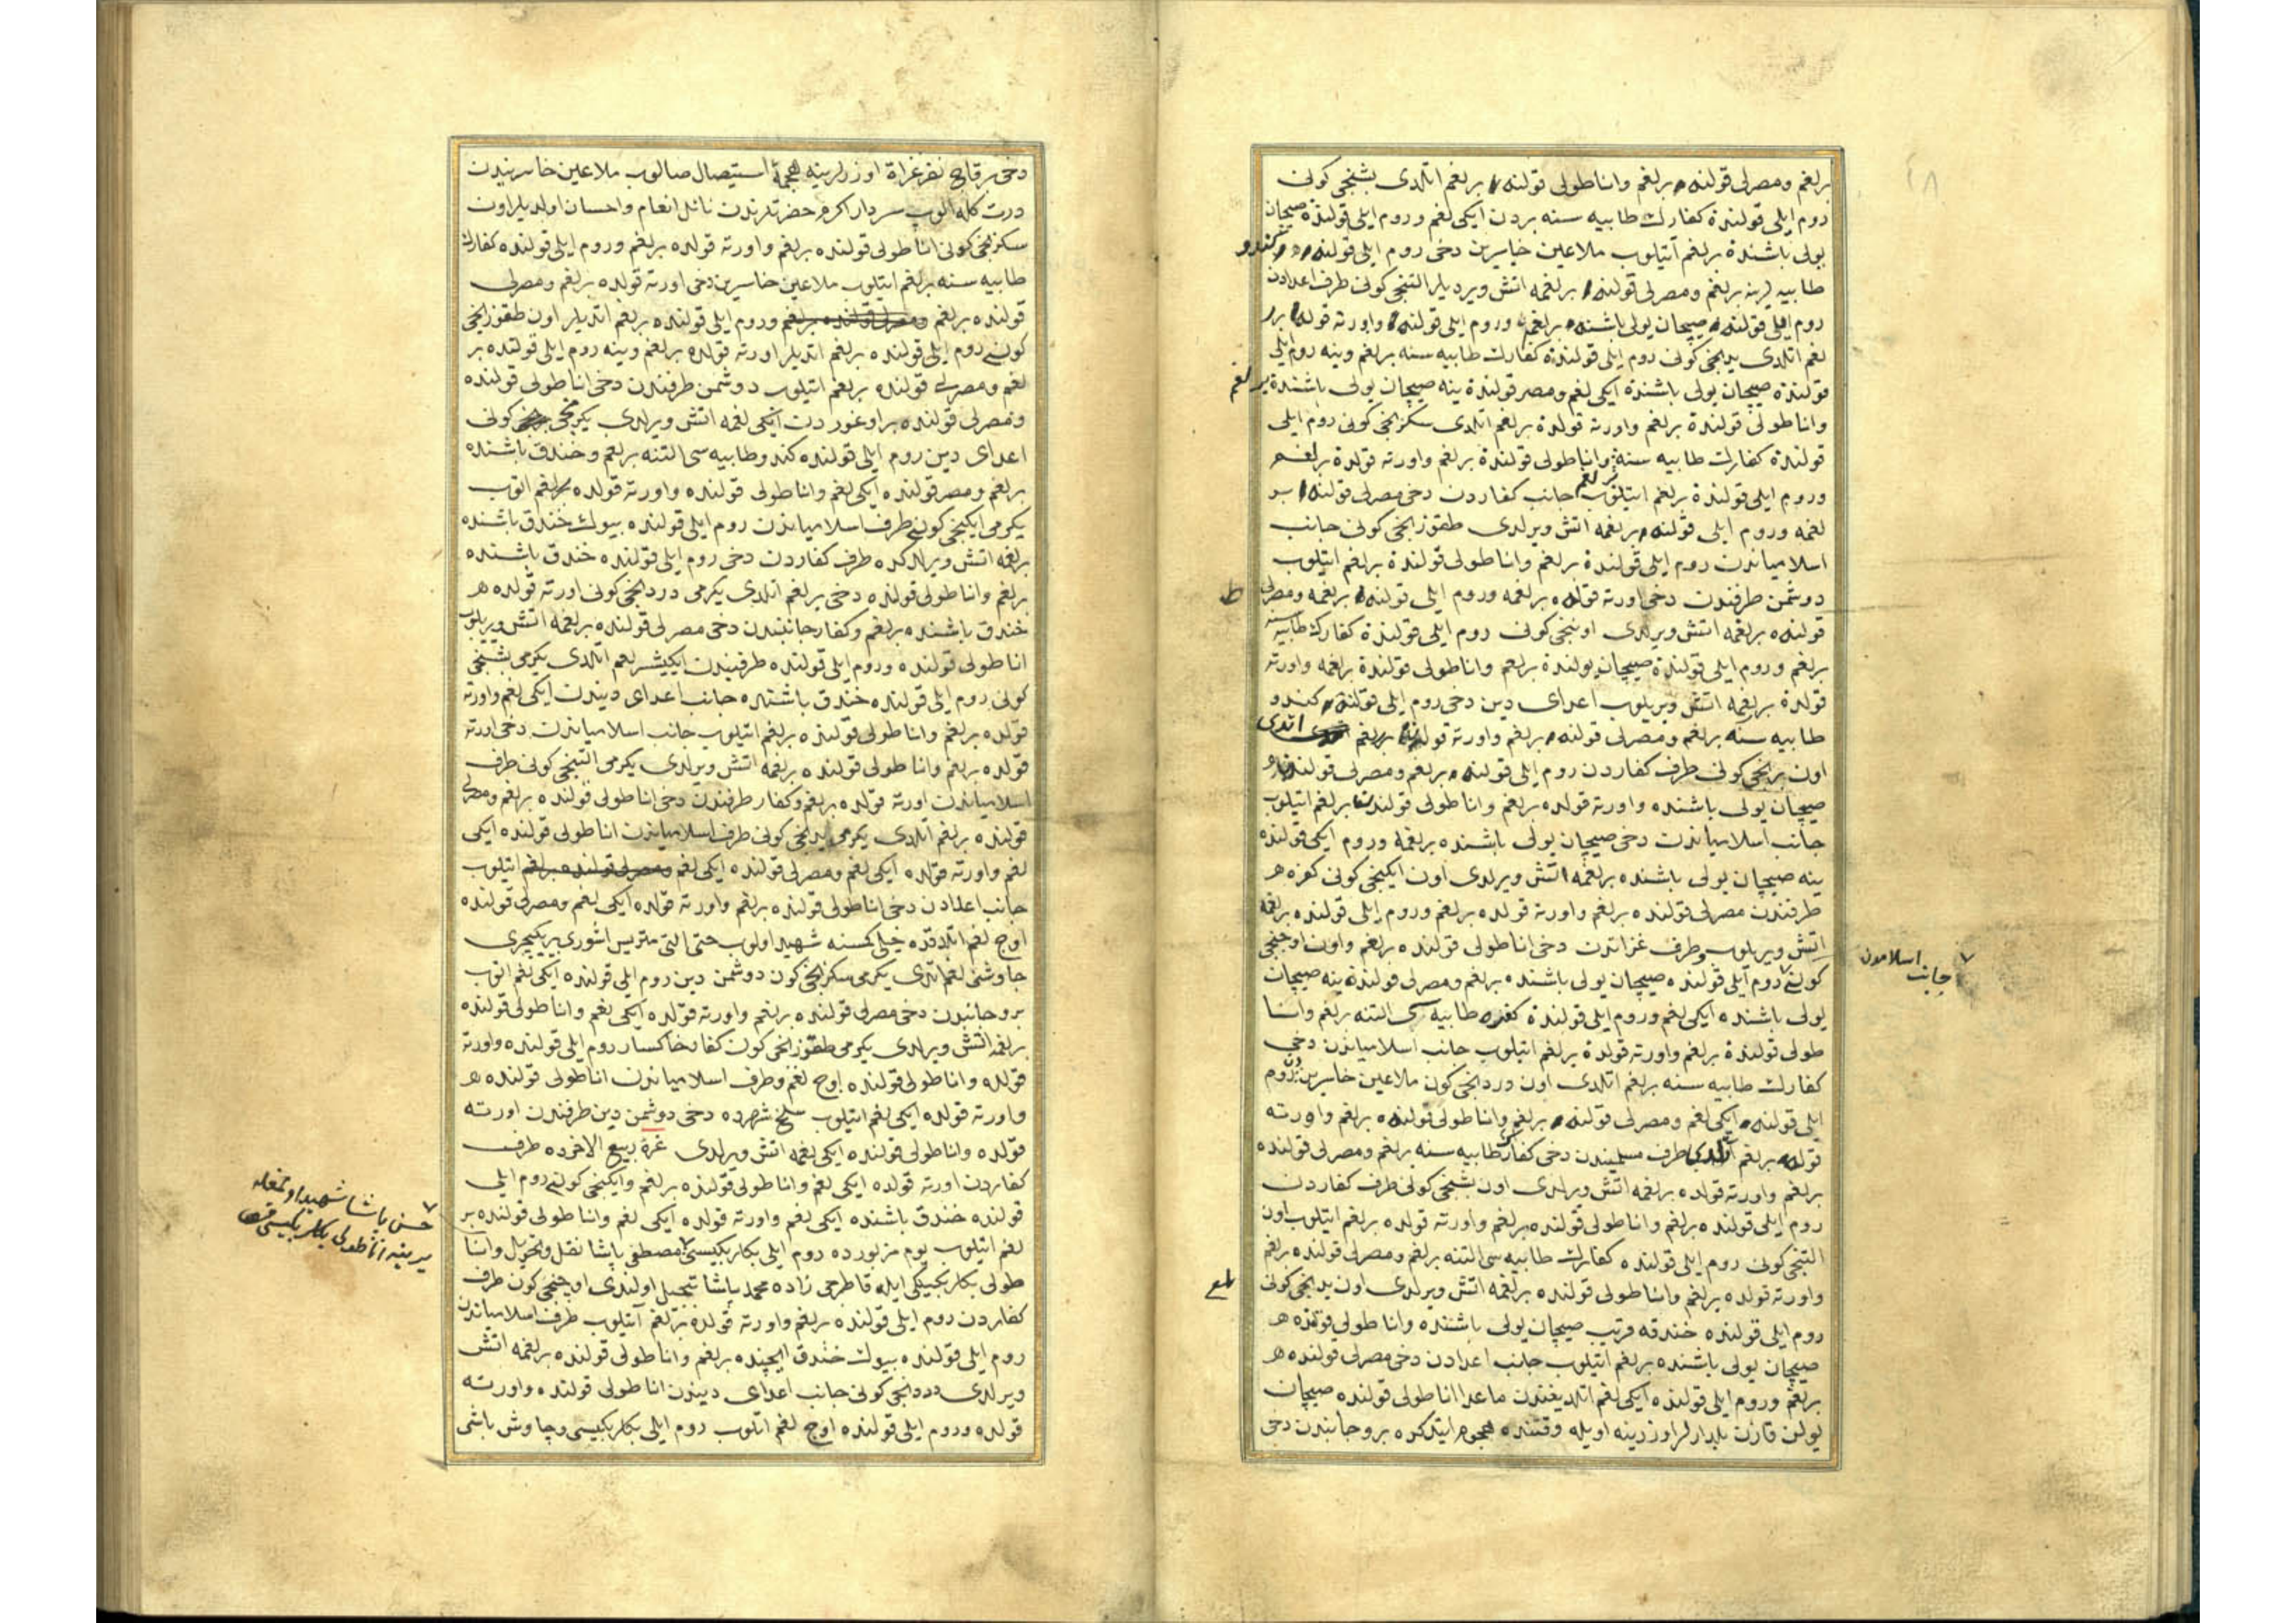 ٤٨
برلغم ومصرلی قولنده برلغم واناطولی قولنده برلغم اتلدی بشنجی کونی
روم ایلی قولنده کفارك طابیه سنه بردن ایکی لغم وروم ایلی قولنده صیچان
یولی باشنده برلغم آتیلوب ملاعین خاسرین دخی روم ایلی قولنده کندو
طابیه لرینه برلغم ومصرلی قولنده برلغمه اتش ویردیلر التنجی کونی طرف اعدادن
روم ایلی قولنده صیچان یولی باشنده برلغم وروم ایلی قولنده واورته قولده برر
لغم اتلدی یدنجی کونی روم ایلی قولنده کفارك طابیه سنه برلغم وینه روم ایلی
قولنده صیچان یولی باشنده ایکی لغم ومصر قولنده ینه صیچان یولی باشنده برلغم
واناطولی قولنده برلغم واورته قولده برلغم اتلدی سکزنجی کونی روم ایلی
قولنده کفارك طابیه سنه برلغم واناطولی قولنده برلغم واورته قولده برلغم
وروم ایلی قولنده برلغم اتیلوب جانب کفاردن دخی مصرلی قولنده بر
لغمه وروم ایلی قولنده برلغمه اتش ویرلدی طقوزنجی کونی جانب
اسلامیاندن روم ایلی قولنده برلغم واناطولی قولنده برلغم اتیلوب
دوشمن طرفندن دخی اورته قولده برلغمه وروم ایلی قولنده برلغمه ومصرلی
قولنده برلغمه اتش ویرلدی اوننجی کونی روم ایلی قولنده کفارك طابیه سنه
برلغم وروم ایلی قولنده صیچان یولنده برلغم واناطولی قولنده برلغمه واورته
قولده برلغمه اتش ویریلوب اعدای دین دخی روم ایلی قولنده کندو
طابیه سنه برلغم ومصرلی قولنده برلغم واورته قولنده برلغم اتلدی
اون برنجی کونی طرف کفاردن روم ایلی قولنده برلغم ومصرلی قولنده
صیچان یولی باشنده واورته قولده برلغم واناطولی قولنده برلغم اتیلوب
جانب اسلامیاندن دخی صیچان یولی باشنده برلغمه وروم ایلی قولنده
ینه صیچان یولی باشنده برلغمه اتش ویرلدی اون ایکینجی کونی کفره
طرفندن مصرلی قولنده برلغم واورته قولده برلغم وروم ایلی قولنده برلغمه
اتش ویریلوب وطرف غزاتدن دخی اناطولی قولنده برلغم واون اوچنجی
کونی روم ایلی قولنده صیچان یولی باشنده برلغم ومصرلی قولنده ینه صیچان
جانب اسلامدن
یولی باشنده ایکی لغم وروم ایلی قولنده کفره طابیه سی التنه برلغم وانا
طولی قولنده برلغم واورته قولده برلغم اتیلوب جانب اسلامیاندن دخی
کفارك طابیه سنه برلغم اتلدی اون دردنجی کون ملاعین خاسرین روم
ایلی قولنده ایکی لغم ومصرلی قولنده برلغم واناطولی قولنده برلغم واورته
قولده برلغم طرف مسلمیندن دخی کفارك طابیه سنه برلغم ومصرلی قولنده
برلغم واورته قولده برلغمه اتش ویرلدی اون بشنجی کونی طرف کفاردن
روم ایلی قولنده برلغم واناطولی قولنده برلغم واورته قولده برلغم اتیلوب اون
التنجی کونی روم ایلی قولنده کفارك طابیه سی التنه برلغم ومصرلی قولنده برلغم
واورته قولده برلغم واناطولی قولنده برلغمه اتش ویرلدی اون یدنجی کونی
روم ایلی قولنده خندقه قریب صیچان یولی باشنده واناطولی قولنده
صیچان یولی باشنده برلغم اتیلوب جانب اعدادن دخی مصرلی قولنده
برلغم وروم ایلی قولنده ایکی لغم اتلدیغندن ماعدا اناطولی قولنده صیچان
یولن قازن بلدارلر اوزرینه اویله وقتنده هجوم ایتدکده بروجانبدن دخی
دخی برقاج نفر غزاة اوزرلرینه هجمهٔ استیصال صالوب ملاعین خاسریندن
درت کله الوب سردار اکرم حضرتلرندن نائل انعام واحسان اولدیلر اون
سکزنجی کونی اناطولی قولنده برلغم واورته قولده برلغم وروم ایلی قولنده کفارك
طابیه سنه برلغم اتیلوب ملاعین خاسرین دخی اورته قولده برلغم ومصرلی
قولنده برلغم ومصرلی قولنده برلغم وروم ایلی قولنده برلغم اتدیلر اون طقوزنجی
کونی روم ایلی قولنده برلغم اتدیلر اورته قولده برلغم وینه روم ایلی قولنده بر
لغم ومصرلی قولنده برلغم اتیلوب دوشمن طرفندن دخی اناطولی قولنده
ومصرلی قولنده براوغوردن ایکی لغمه اتش ویرلدی یکرمنجی کونی
اعدای دین روم ایلی قولنده کندو طابیه سی التنه برلغم وخندق باشنده
برلغم ومصر قولنده ایکی لغم واناطولی قولنده واورته قولده برلغم اتوب
یکرمی ایکنجی کونی طرف اسلامیاندن روم ایلی قولنده بیوك خندق باشنده
برلغمه اتش ویرلدکده طرف کفاردن دخی روم ایلی قولنده خندق باشنده
برلغم واناطولی قولنده دخی برلغم اتلدی یکرمی دردنجی کونی اورته قولده
خندق باشنده برلغم وکفار جانبندن دخی مصرلی قولنده برلغمه اتش ویریلوب
اناطولی قولنده وروم ایلی قولنده طرفیندن ایکیشر لغم اتلدی یکرمی بشنجی
کونی روم ایلی قولنده خندق باشنده جانب اعدای دیندن ایکی لغم واورته
قولده برلغم واناطولی قولنده برلغم اتیلوب جانب اسلامیاندن دخی اورته
قولده برلغم واناطولی قولنده برلغمه اتش ویرلدی یکرمی التنجی کونی طرف
اسلامیاندن اورته قولده برلغم وکفار طرفندن دخی اناطولی قولنده برلغم ومصرلی
قولنده برلغم اتلدی یکرمی یدنجی کونی طرف اسلامیاندن اناطولی قولنده ایکی
لغم واورته قولده ایکی لغم ومصرلی قولنده ایکی لغم ومصرلی قولنده برلغم اتیلوب
جانب اعدادن دخی اناطولی قولنده برلغم واورته قولده ایکی لغم ومصرلی قولنده
اوچ لغم اتلدقده خیلی کمسنه شهید اولوب حتی التی متریس اشوری بریکیچری
جاوشنی لغم اتدی یکرمی سکزنجی کون دوشمن دین روم ایلی قولنده ایکی لغم اتوب
بروجانبدن دخی مصرلی قولنده برلغم واورته قولده ایکی لغم واناطولی قولنده
برلغمه اتش ویرلدی یکرمی طقوزنجی کون کفار خاکسار روم ایلی قولنده واورته
قولده واناطولی قولنده اوچ لغم وطرف اسلامیاندن اناطولی قولنده
واورته قولده ایکی لغم اتیلوب سلخ شهرده دخی دوشمن دین طرفندن اورته
قولده واناطولی قولنده ایکی لغمه اتش ویرلدی غرهٔ ربیع الاخرده طرف
کفاردن اورته قولده ایکی لغم واناطولی قولنده برلغم وایکنجی کونی روم ایلی
قولنده خندق باشنده ایکی لغم واورته قولده ایکی لغم واناطولی قولنده بر
لغم اتیلوب یوم مزبورده روم ایلی بکلربکیسی مصطفی پاشا نقل وتحویل وانا
حسن پاشا شهید اولمغله
یرینه اناطولی بکلربکیسی
طولی بکلربکیلکی ایله قاطرجی زاده محمد پاشا تبجیل اولندی اوچنجی کون طرف
کفاردن روم ایلی قولنده برلغم واورته قولده برلغم آتیلوب طرف اسلامیاندن
روم ایلی قولنده بیوك خندق ایچنده برلغم واناطولی قولنده برلغمه اتش
ویرلدی دردنجی کونی جانب اعدای دیندن اناطولی قولنده واورته
قولده وروم ایلی قولنده اوچ لغم اتلوب روم ایلی بکلربکیسی وچاوش باشی